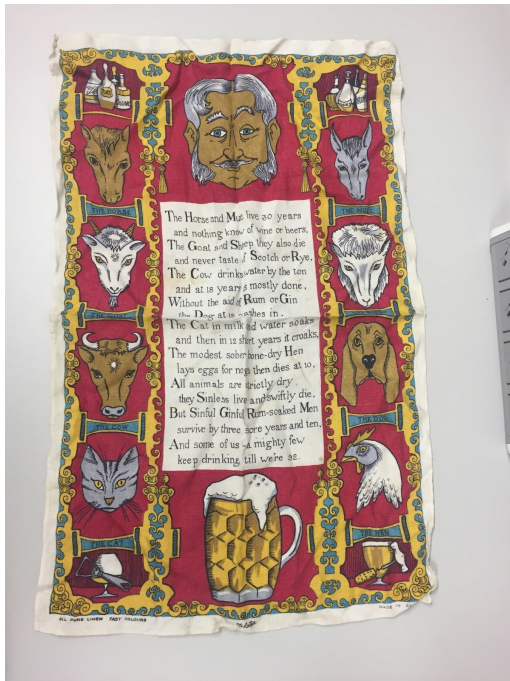 THE HORSE
THE MULE
THE GOAT
THE COW
THE DOG
THE CAT
THE HEN
The Horse and Mule live 30 years
and nothing know of wine or beers,
The Goat and Sheep they also die
and never taste of Scotch or Rye,
The Cow drinks water by the ton
and at 18 years mostly done,
Without the aid of Rum or Gin
the Dog at 14 cashes in.
The Cat in milk and water soaks
and then in 12 short years it croaks,
The modest sober bone-dry Hen
lays eggs for nogs then dies at 10,
All animals are strictly dry
they Sinless live and swiftly die.
But Sinful Ginful Rum-soaked Men
survive by three score years and ten,
And some of us - a mighty few
keep drinking till we're 92.
ALL PURE LINEN FAST COLOURS
MADE IN